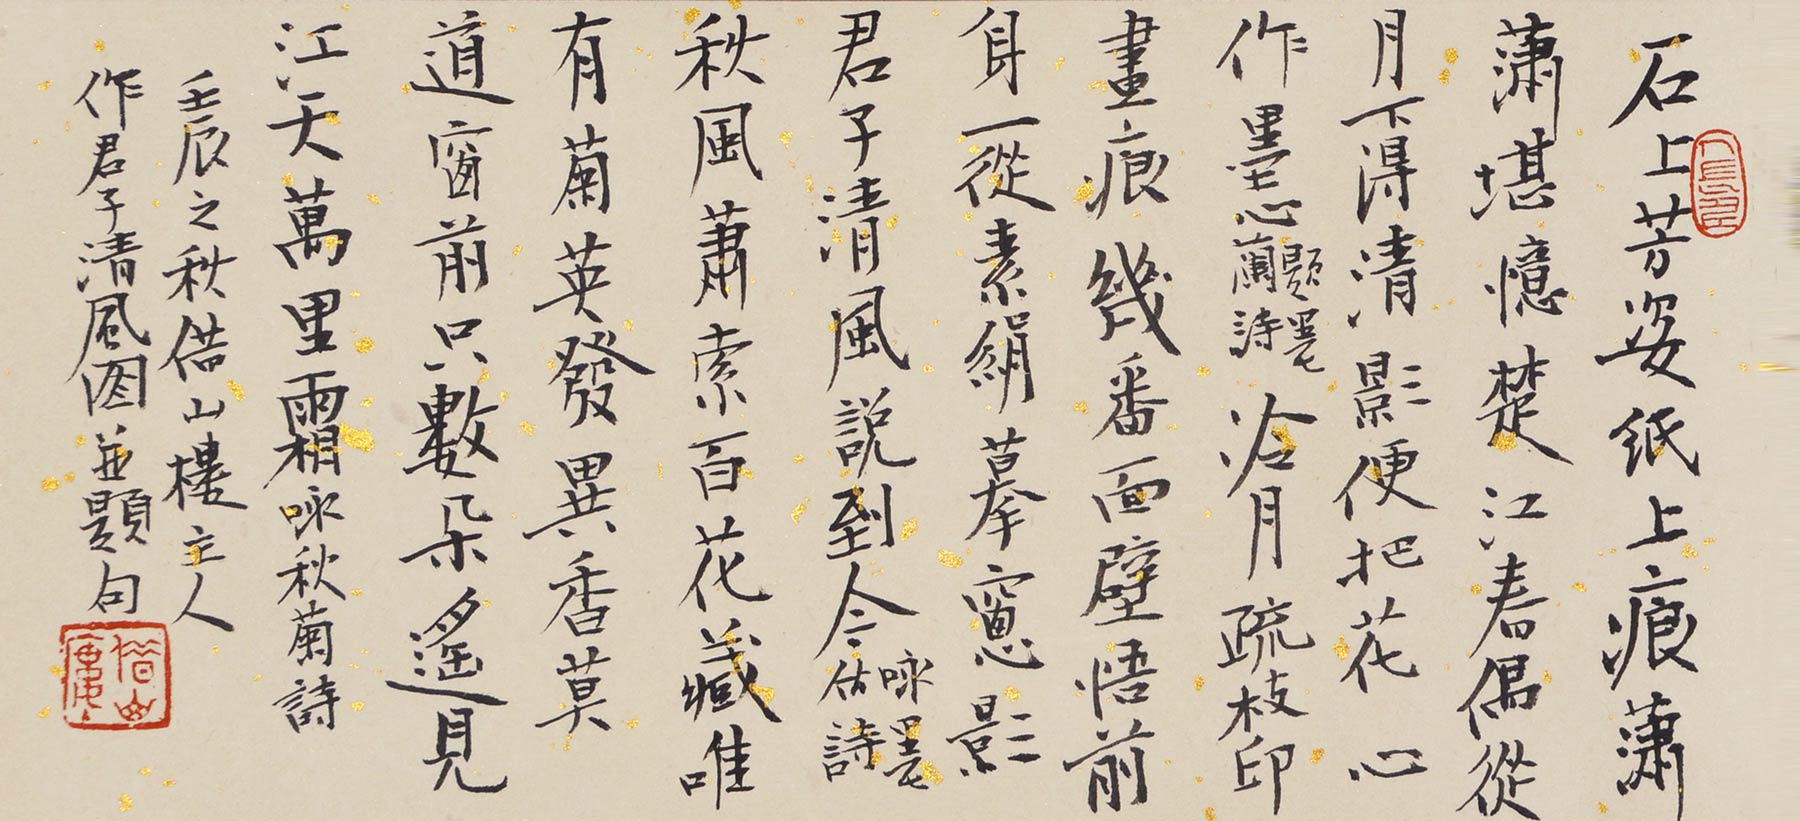 石上芳姿紙上痕瀟
瀟堪憶楚江春偶從
月下得清影便把花心
作墨心題墨蘭詩冷月疏枝印
畫痕幾番面壁悟前
身一從素絹摹窗影
君子清風說到今咏墨竹詩
秋風蕭索百花藏唯
有菊英發異香莫
道窗前只數朵遙見
江天萬里霜咏秋菊詩
壬辰之秋借山樓主人
作君子清風圖並題句